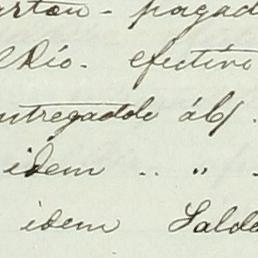 arton - pagad
lRio. efectivo
ntregadole áb/.
idem .. " -
idem Saldo